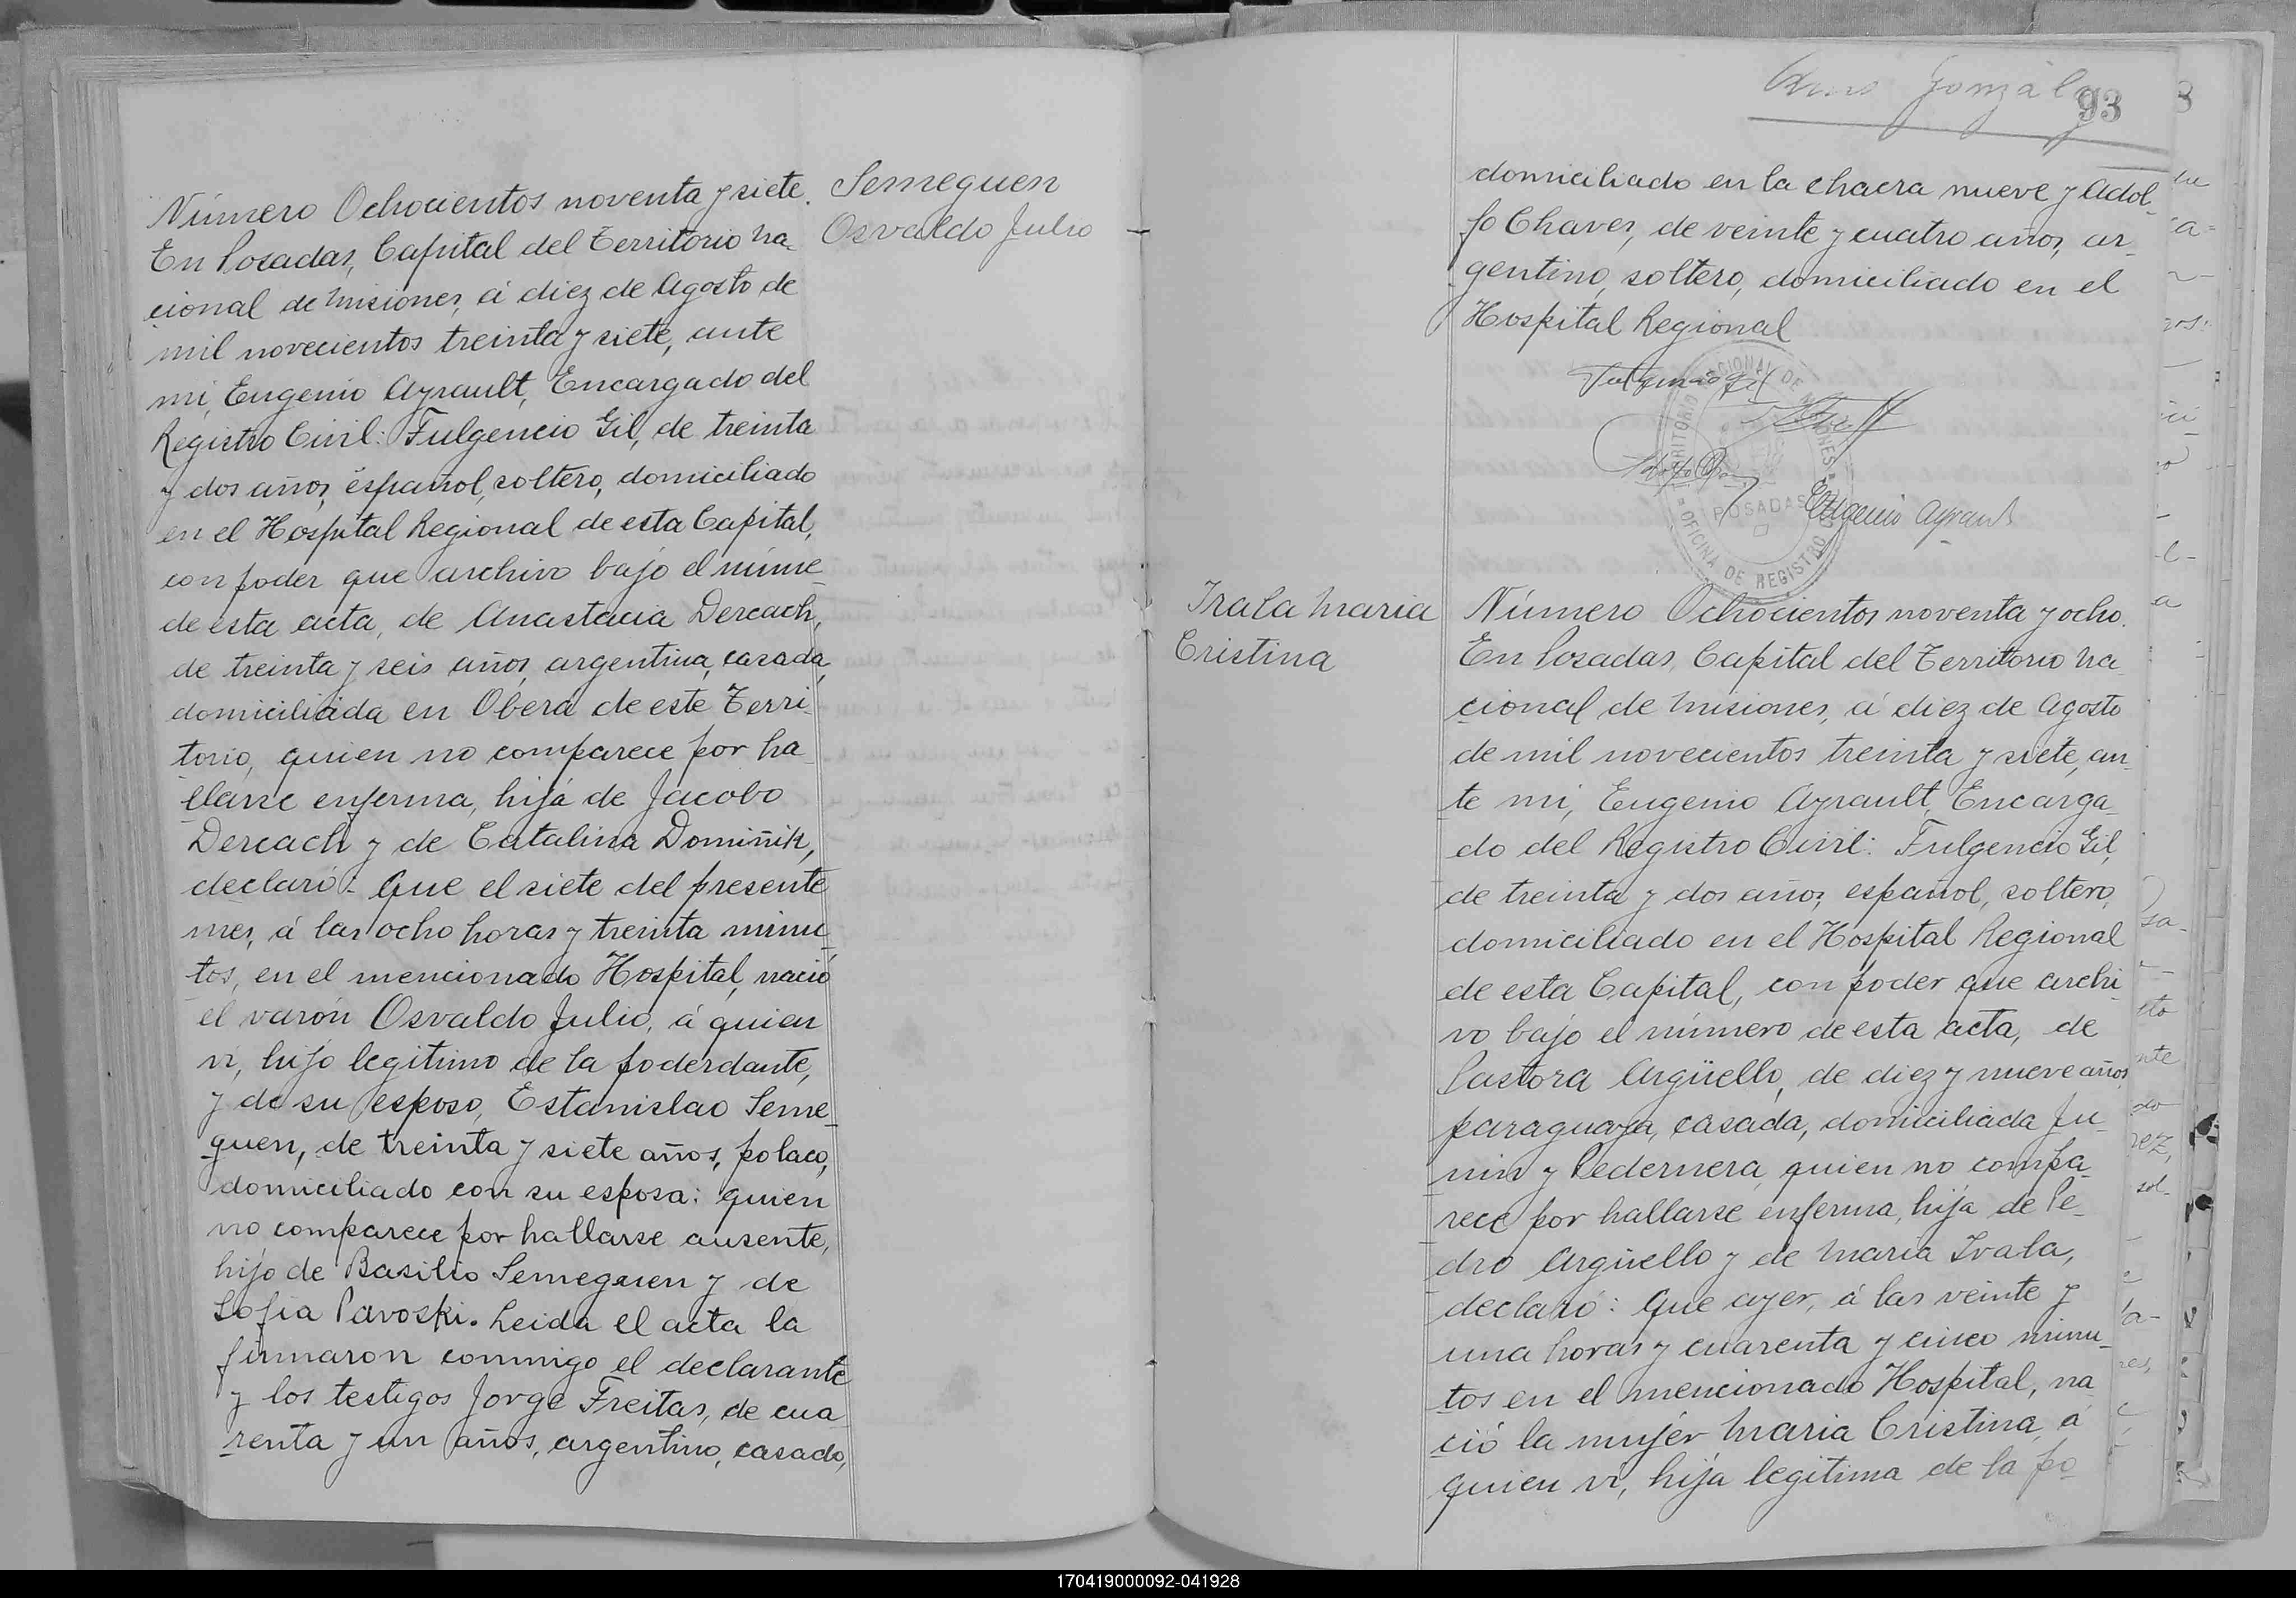 Semeguen
Osvaldo Julio
Número Ochocientos noventa y siete.
En Posadas, Capital del Territorio Na-
cional de Misiones, á diez de Agosto de
mil novecientos treinta y siete, ante
mi, Eugenio Ayrault, Encargado del
Registro Civil: Fulgencio Gil, de treinta
y dos años, español, soltero, domiciliado
en el Hospital Regional de esta Capital,
con poder que archivo bajo el núme-
de esta acta, de Anastacia Dereach,
de treinta y seis años, argentina, casada,
domiciliada en Oberá de este Terri-
torio, quien no comparece por ha-
llarse enferma, hija de Jacobo
Dereach y de Catalina Domiñik,
declaró: Que el siete del presente
mes, á las ocho horas y treinta minu-
tos, en el mencionado Hospital, nació
el varón Osvaldo Julio, á quien
vi, hijo legitimo de la poderdante,
y de su esposo, Estanislao Seme-
guen, de treinta y siete años, polaco,
domiciliado con su esposa: quien
no comparece por hallarse ausente,
hijo de Basilio Semeguen y de
Sofia Pavoski. Leida el acta la
firmaron conmigo el declarante
y los testigos Jorge Freitas, de cua-
renta y un años, argentino, casado,
González
93
domiciliado en la chacra nueve y Adol-
fo Chaves, de veinte y cuatro años, ar-
gentino, soltero, domiciliado en el
Hospital Regional
Fulgencio Gil
Eugenio Ayrault
TERRITORIO NACIONAL DE MISIONES
POSADAS
OFICINA DE REGISTRO
Irala Maria
Cristina
Número Ochocientos noventa y ocho.
En Posadas, Capital del Territorio Na-
cional de Misiones, á diez de Agosto
de mil novecientos treinta y siete, an-
te mi, Eugenio Ayrault, Encarga-
do del Registro Civil: Fulgencio Gil,
de treinta y dos años, español, soltero,
domiciliado en el Hospital Regional
de esta Capital, con poder que archi-
vo bajo el número de esta acta, de
Pastora Argüello, de diez y nueve años,
paraguaya, casada, domiciliada Ju-
nin y Pedernera, quien no compa-
rece por hallarse enferma, hija de Pe-
dro Argüello y de Maria Irala,
declaró: Que ayer, á las veinte y
una horas y cuarenta y cinco minu-
tos en el mencionado Hospital, na-
ció la mujer Maria Cristina, á
quien vi, hija legitima de la po-
170419000092-041928